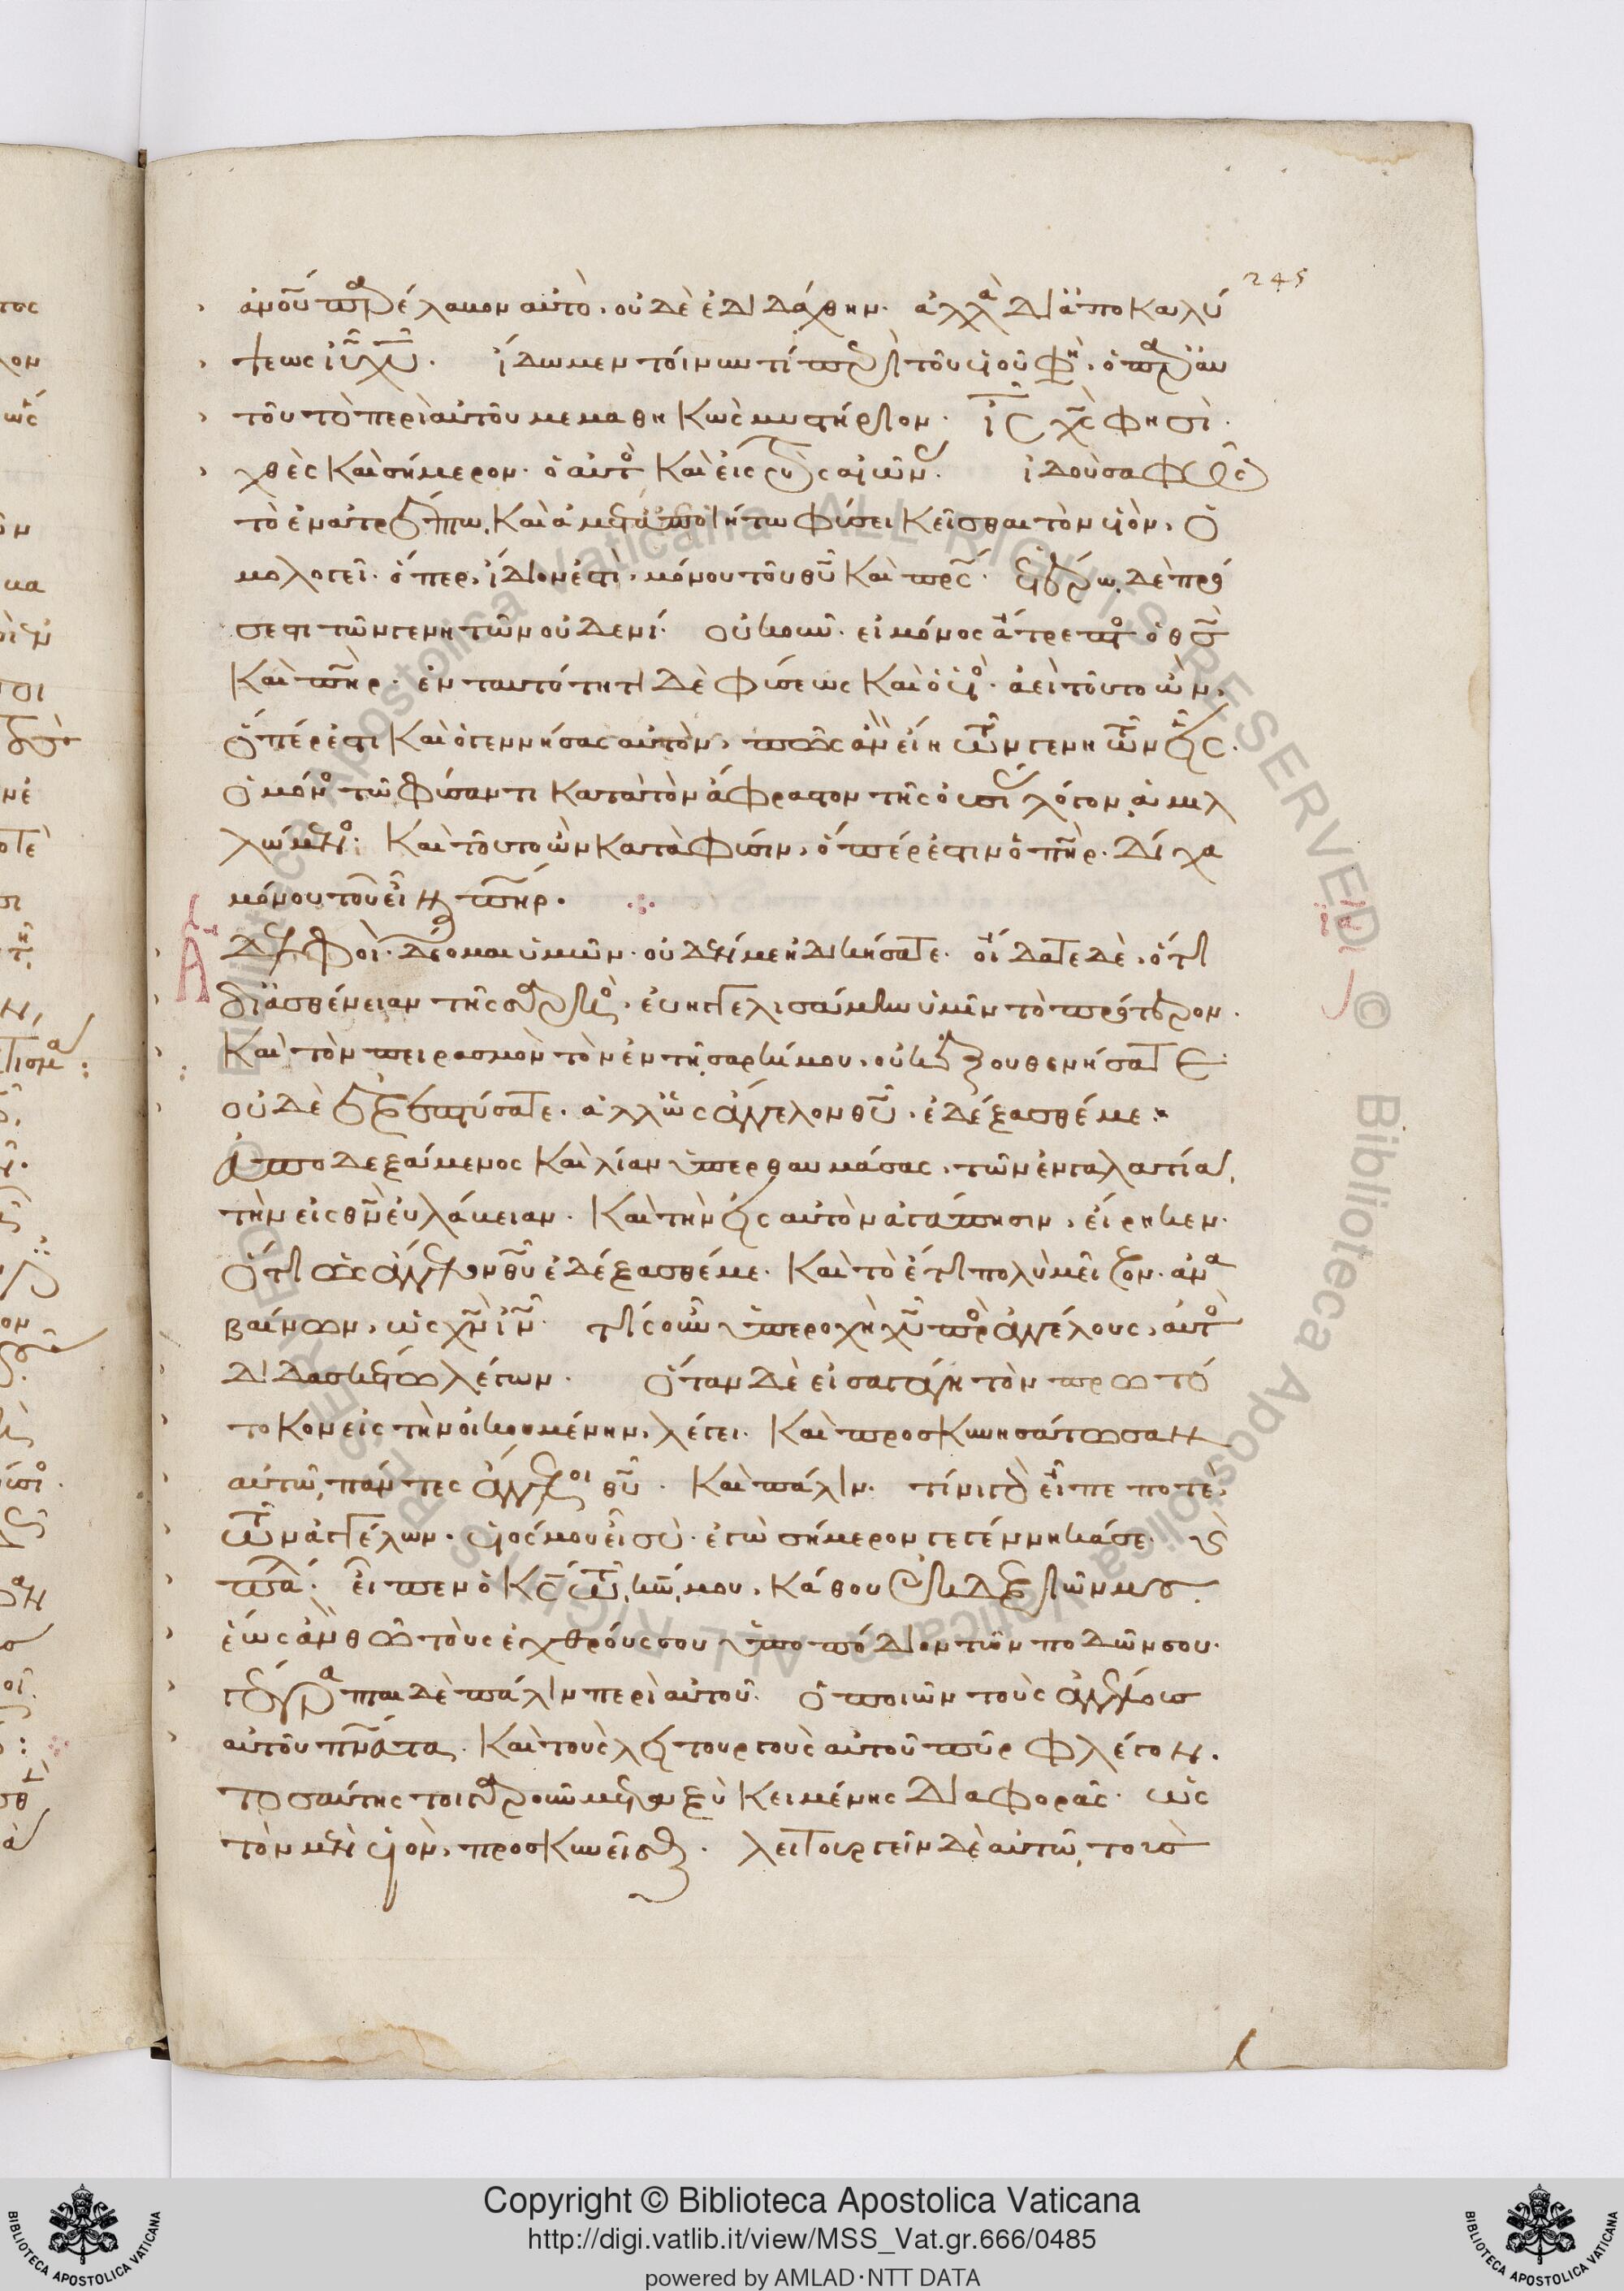 245
ἀνο͞υ παρέλαβον αὐτὸ, οὐδὲ ἐδιδάχθην· ἀλλὰ δι ἀποκαλύ
ψεως ἰ͞υ χ͞υ. ἴδωμεν τοίνυν τί περὶ τοῦ υἱοῦ φη, ὁ παρ αυ
τοῦ τὸ περὶ αὐτοῦ μεμαθηκὼς μυστήριον. ἰ͞ς χ͞ς φησὶ.
χθὲς καὶ σήμερον· ὁ αὐτὸς καὶ εἰς τοὺς αἰῶνας. ἰδοὺ σαφῶς
τὸ ἐν ἀτρέπτω, καὶ ἀμεταποιήτω φύσει κεῖσθαι τὸν υἱὸν, ὁ
μολογεῖ· ὅπερ, ἴδιον ἐστὶ, μόνου τοῦ θ͞υ καὶ π͞ρς· ἑτέρω δὲ πρό
σεστι τῶν γενητῶν οὐδενί. οὐκοῦν· εἰ μόνος ἄτρεπτος ὁ θ͞ς
καὶ π͞ηρ· ἐν ταυτότητι δὲ φύσεως καὶ ὁ υἱὸς· ἀεὶ τοῦτο ὢν,
ὅπέρ ἐστι καὶ ὁ γεννήσας αὐτὸν, πῶς ἂν εἴη τῶν γενητῶν εἷς.
ὁ μόνος τῶ φύσαντι κατὰ τὸν ἄφραστον τῆς οὐσίας λόγον, ἁμιλ
λώμενος· καὶ τοῦτο ὢν κατὰ φύσιν, ὅπέρ ἐστιν ὁ π͞ηρ· δίχα
μόνου τοῦ εἶναι π͞ηρ.
Ἀδελφοὶ· δέομαι ὑμῶν· οὐδέν με ἠδικήσατε· οἴδατε δὲ, ὅτι
ια
δι ἀσθένειαν τῆς σαρκὸς, εὐηγγελισάμην ὑμῖν τὸ πρότερον.
καὶ τὸν πειρασμὸν τὸν ἐν τῆ σαρκί μου, οὐκ ἐξουθενήσατε
οὐδὲ ἐξεπτύσατε· ἀλλ ὡς ἄγγελον θ͞υ, ἐδέξασθέ με:
ἀποδεξάμενος καὶ λίαν ὑπερθαυμάσας, τῶν ἐν γαλατία,
τὴν εἰς θ͞ν εὐλάβειαν· καὶ τὴν εἰς αὐτὸν ἀγάπησιν, εἴρηκεν·
ὅτι ὡς ἄγγελον θ͞υ ἐδέξασθέ με· καὶ τὸ ἔτι πολὺ μεῖζον· ἀνα
βαίνων, ὡς χ͞ν ἰ͞ν. τίς οὖν ὑπεροχὴ χ͞υ πρὸς ἀγγέλους, αὐτὸς
διδασκέτω λέγων. ὅταν δὲ εἰσαγάγη τὸν πρωτό
τοκον εἰς τὴν οἰκουμένην, λέγει· καὶ προσκυνησάτωσαν
αὐτῶ, πάντες ἄγγελοι θ͞υ. καὶ πάλιν· τίνι γὰρ εἶπέ ποτὲ,
τῶν ἀγγέλων· υἱός μου εἶ σὺ· ἐγὼ σήμερον γεγέννηκά σε. καὶ
πάλιν· εἶπεν ὁ κ͞ς τῶ κ͞ω, μου, κάθου ἐκ δεξιῶν μου.
ἕως ἂν θῶ τοὺς ἐχθρούς σου ὑποπόδιον τῶν ποδῶν σου.
γέγραπται δὲ πάλιν περὶ αὐτοῦ. ὁ ποιῶν τοὺς ἀγγέλους
αὐτοῦ πν͞ατα, καὶ τοὺς λειτουργοὺς αὐτοῦ πῦρ φλέγον.
τοσαύτης τοιγαροῦν μεταξὺ κειμένης διαφορᾶς· ὡς
τὸν μὲν υἱὸν, προσκυνεῖσθαι. λειτουργεῖν δὲ αὐτῶ, τοὺς
Copyright © Biblioteca Apostolica Vaticana
http://digi.vatlib.it/view/MSS_Vat.gr.666/0485
powered by AMLAD·NTT DATA